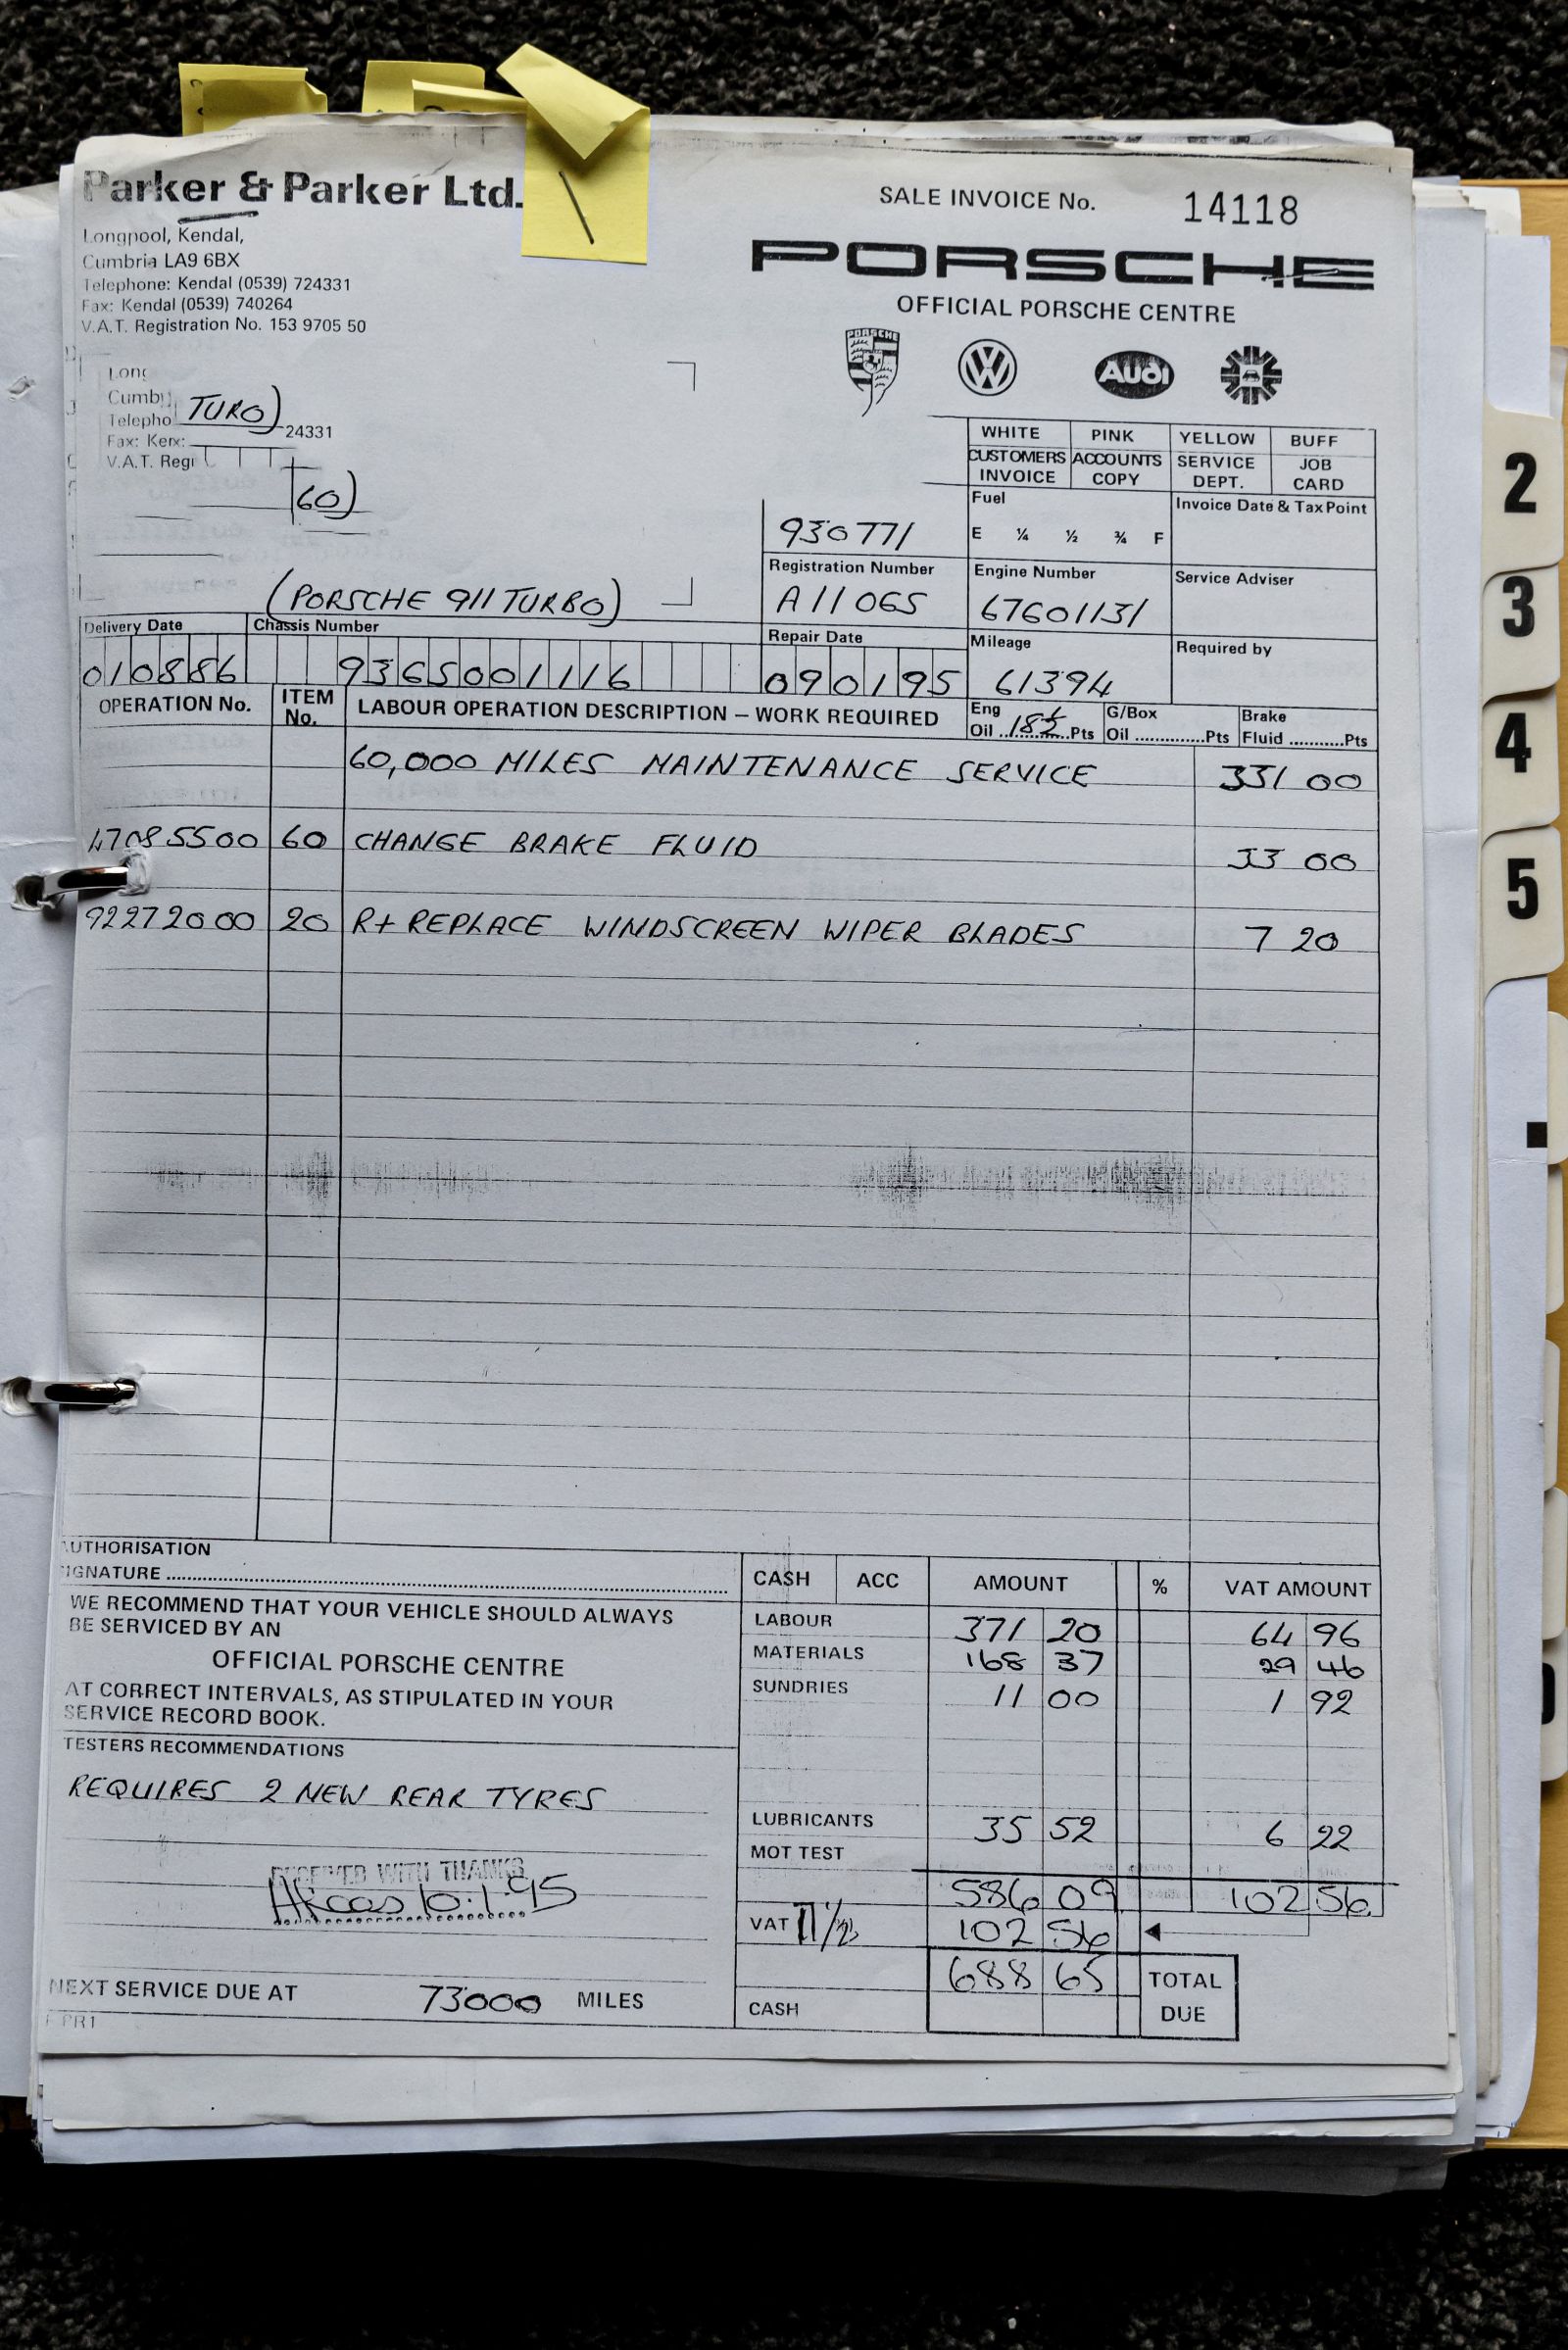 Parker & Parker Ltd.
SALE INVOICE No. 14118
Longpool, Kendal,
Cumbria LA9 6BX
Telephone: Kendal (0539) 724331
Fax: Kendal (0539) 740264
V.A.T. Registration No. 153 9705 50
PORSCHE
OFFICIAL PORSCHE CENTRE
PORSCHE
VW
Audi
Long
Cumb
Telepho TURO) 24331
Fax: Ken:
V.A.T. Regi
60)
WHITE PINK YELLOW BUFF
CUSTOMERS INVOICE ACCOUNTS COPY SERVICE DEPT. JOB CARD
930771
Fuel
E ¼ ½ ¾ F
Invoice Date & Tax Point
Registration Number Engine Number Service Adviser
(PORSCHE 911 TURBO) A11 OGS 67601131
Delivery Date Chassis Number Repair Date Mileage Required by
010886 936S001116 090195 61394
OPERATION No. ITEM No. LABOUR OPERATION DESCRIPTION – WORK REQUIRED Eng Oil 18½ Pts G/Box Oil ............. Pts Brake Fluid ........... Pts
60,000 MILES MAINTENANCE SERVICE 331 00
47085500 60 CHANGE BRAKE FLUID 33 00
92272000 20 R+REPLACE WINDSCREEN WIPER BLADES 7 20
2
3
4
5
AUTHORISATION
SIGNATURE
WE RECOMMEND THAT YOUR VEHICLE SHOULD ALWAYS
BE SERVICED BY AN
OFFICIAL PORSCHE CENTRE
AT CORRECT INTERVALS, AS STIPULATED IN YOUR
SERVICE RECORD BOOK.
TESTERS RECOMMENDATIONS
REQUIRES 2 NEW REAR TYRES
RECEIVED WITH THANKS
10.1.95
NEXT SERVICE DUE AT 73000 MILES
CASH ACC AMOUNT % VAT AMOUNT
LABOUR 371 20 64 96
MATERIALS 168 37 29 46
SUNDRIES 11 00 1 92
LUBRICANTS 35 52 6 22
MOT TEST
586 09 102 56
VAT 17 1/2 102 56
688 65 TOTAL DUE
CASH